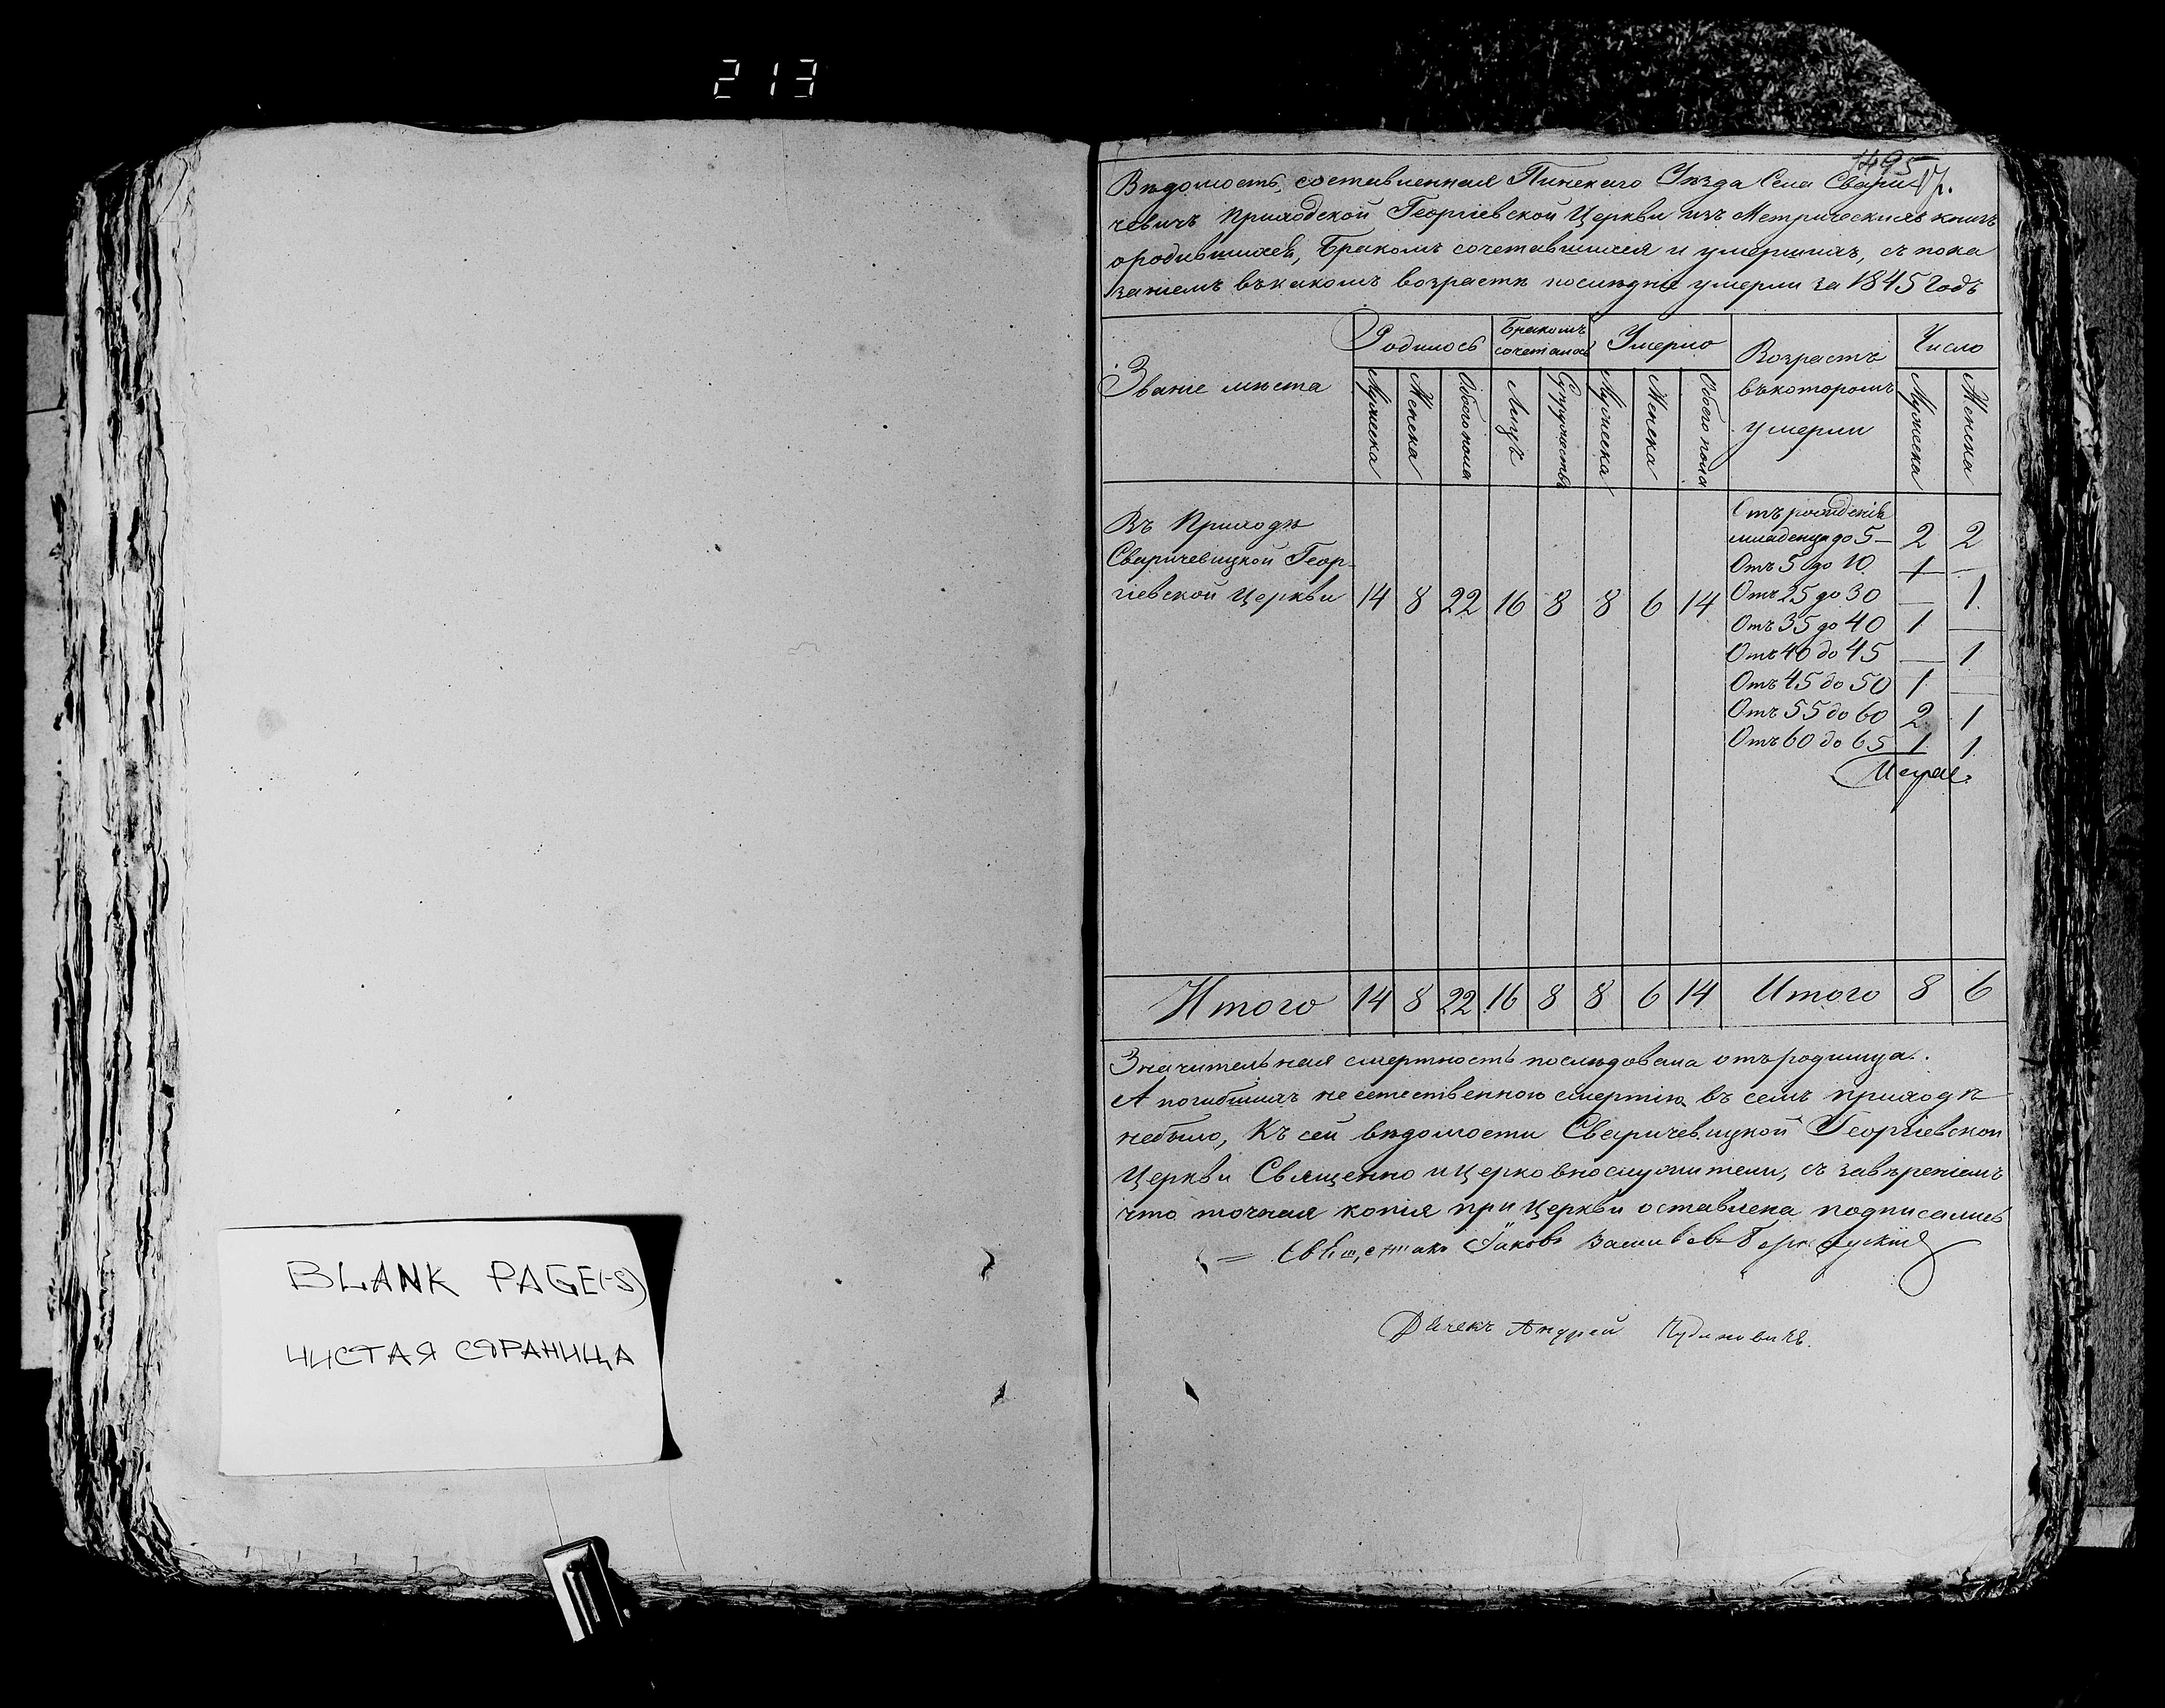 213
BLANK PAGE(-S)
ЧИСТАЯ СТРАНИЦА
495
17.
Вѣдомость, составленная Пинскаго Уѣзда Села Свари-
чевичъ Приходской Георгіевской Церкви изъ Метрическихъ книгъ
ородившихся, Бракомъ сочетавшихся и умершихъ, съ пока
заніемъ въ какомъ возрастѣ послѣдніе умерли за 1845 Годъ
Званіе мѣста
Родилось
Бракомъ сочеталось
Умерло
Возрастъ въкоторомъ умерли
Число
Мужеска
Женска
Обоего пола
Лицъ
Супружествъ
Мужеска
Женска
Обоего пола
Мужеска
Женска
Въ Приходѣ
Сваричевицкой Геор-
гіевской Церкви 14 8 22 16 8 8 6 14
Отъ рожденія
младенца до 5 — 2 2
Отъ 5 до 10 1 —
Отъ 25 до 30 — 1
Отъ 35 до 40 1 —
Отъ 40 до 45 — 1
Отъ 45 до 50 1 —
Отъ 55 до 60 2 1
Отъ 60 до 65 1 1
Итого 14 8 22 16 8 8 6 14 Итого 8 6
Значительная смертность послѣдовала отъ родимца.
А погибшихъ не естественною смертію въ семъ приходѣ
небыло, Къ сей вѣдомости Сваричевицкой Георгіевской
Церкви Священно и Церковнослужители, съ завѣреніемъ
что точная копія при Церкви оставлена подписались
Іаковъ Васильевъ
Дьячекъ Андрей